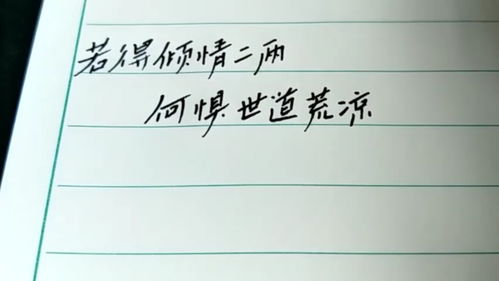 若得倾情二两
何惧世道荒凉